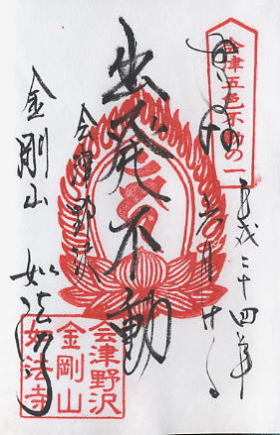 会津五色不動の一
奉拝
平成二十四年
出発不動
会津野沢
金剛山 如法寺
会津野沢
金剛山
如法寺